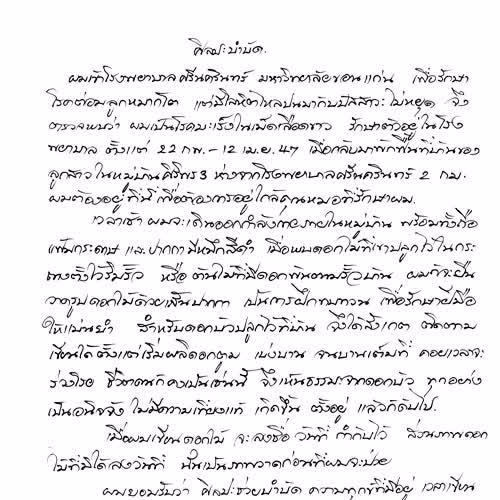 ศิลปะบำบัด.
ผมเข้าโรงพยาบาลศรีนครินทร์ มหาวิทยาลัยขอนแก่น เพื่อรักษา
โรคต่อมลูกหมากโต แต่มีโลหิตไหลปนมากับปัสสาวะไม่หยุด จึง
ตรวจพบว่า ผมเป็นโรคมะเร็งในเม็ดเลือดขาว รักษาตัวอยู่ในโรง
พยาบาล ตั้งแต่ 22 กพ. - 12 เม.ย. 47 เมื่อกลับมาพักฟื้นที่บ้านของ
ลูกสาวในหมู่บ้าน ห่างจากโรงพยาบาลศรีนครินทร์ 2 กม.
ผมต้องอยู่ที่นี่ เพื่อต้องการอยู่ใกล้คุณหมอที่รักษาผม.
เวลาเช้า ผมจะเดินออกกำลังกายภายในหมู่บ้าน พร้อมทั้งถือ
แฟ้มกระดาษ และปากกามีหมึกสีดำ เมื่อพบดอกไม้ที่เขาปลูกไว้ในกระ
ถางตั้งไว้ริมรั้ว หรือต้นไม้ที่มีดอกขึ้นตามรั้วบ้าน ผมก็จะยืน
วาดรูปดอกไม้ด้วยเส้นปากกา เป็นการฝึกทบทวน เพื่อรักษาฝีมือ
ให้แม่นยำ สำหรับดอกบัวปลูกไว้ที่บ้าน จึงได้สังเกต ติดตาม
เขียนได้ตั้งแต่เริ่มผลิดอกตูม เบ่งบาน จนบานเต็มที่ คอยเวลาจะ
ร่วงโรย ชีวิตคนก็คงเป็นเช่นนี้ จึงเห็นธรรมะจากดอกบัว ทุกอย่าง
เป็นอนิจจัง ไม่มีความเที่ยงแท้ เกิดขึ้น ตั้งอยู่ แล้วก็ดับไป.
เมื่อผมเขียนดอกไม้ จะลงชื่อ วันที่ กำกับไว้ ส่วนภาพดอก
ไม้ที่มิได้ลงวันที่ นั้นเป็นภาพวาดก่อนที่ผมจะป่วย
ผมยอมรับว่า ศิลปะช่วยบำบัด ความทุกข์ที่มีอยู่ เวลาเขียน